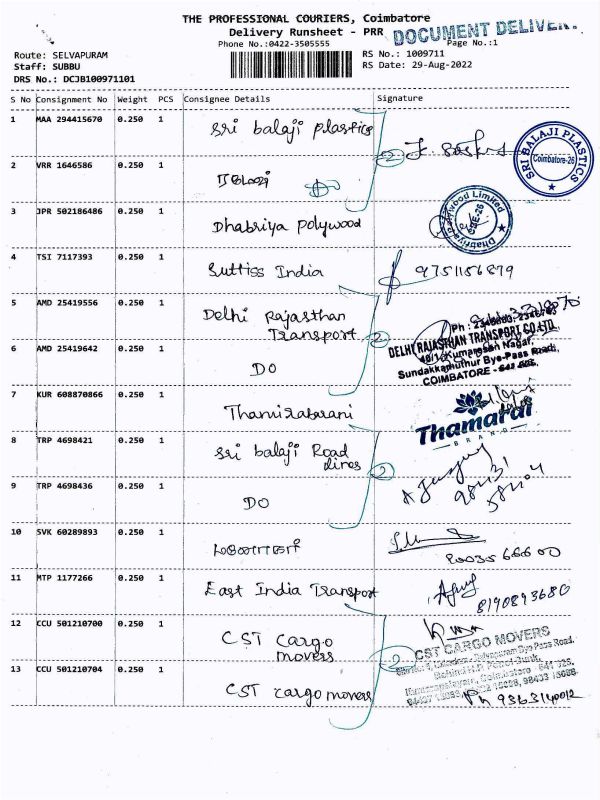 THE PROFESSIONAL COURIERS, Coimbatore
Delivery Runsheet - PRR
DOCUMENT DELIVER
Phone No.:0422-3505555
Page No.:1
Route: SELVAPURAM
RS No.: 1009711
Staff: SUBBU
RS Date: 29-Aug-2022
DRS No.: DCJB100971101
S No Consignment No Weight PCS Consignee Details Signature
1 MAA 294415670 0.250 1 Sri balaji plastics
2
SRI BALAJI PLASTICS
Coimbatore-26
2 VRR 1646586 0.250 1
3 JPR 502186486 0.250 1 Dhabriya polywood
Dhabriya Polywood Limited
CBE-26
4 TSI 7117393 0.250 1 Suttiss India 9751156879
5 AMD 25419556 0.250 1 Delhi Rajasthan
Transport
2
DELHI RAJASTHAN TRANSPORT CO. LTD.
49/1, Kumarasan Nagar,
Sundakkamuthur Bye-Pass Road,
COIMBATORE -
6 AMD 25419642 0.250 1 DO
7 KUR 608870866 0.250 1 Thamirabarani
Thamarai
BRAND
8 TRP 4698421 0.250 1 Sri balaji Road
lines
2
9 TRP 4698436 0.250 1 DO
10 SVK 60289893 0.250 1
11 MTP 1177266 0.250 1 East India Transport
8190893680
12 CCU 501210700 0.250 1 CST Cargo
movers
2
CST CARGO MOVERS
13 CCU 501210704 0.250 1 CST cargo movers
Ph 9363140012